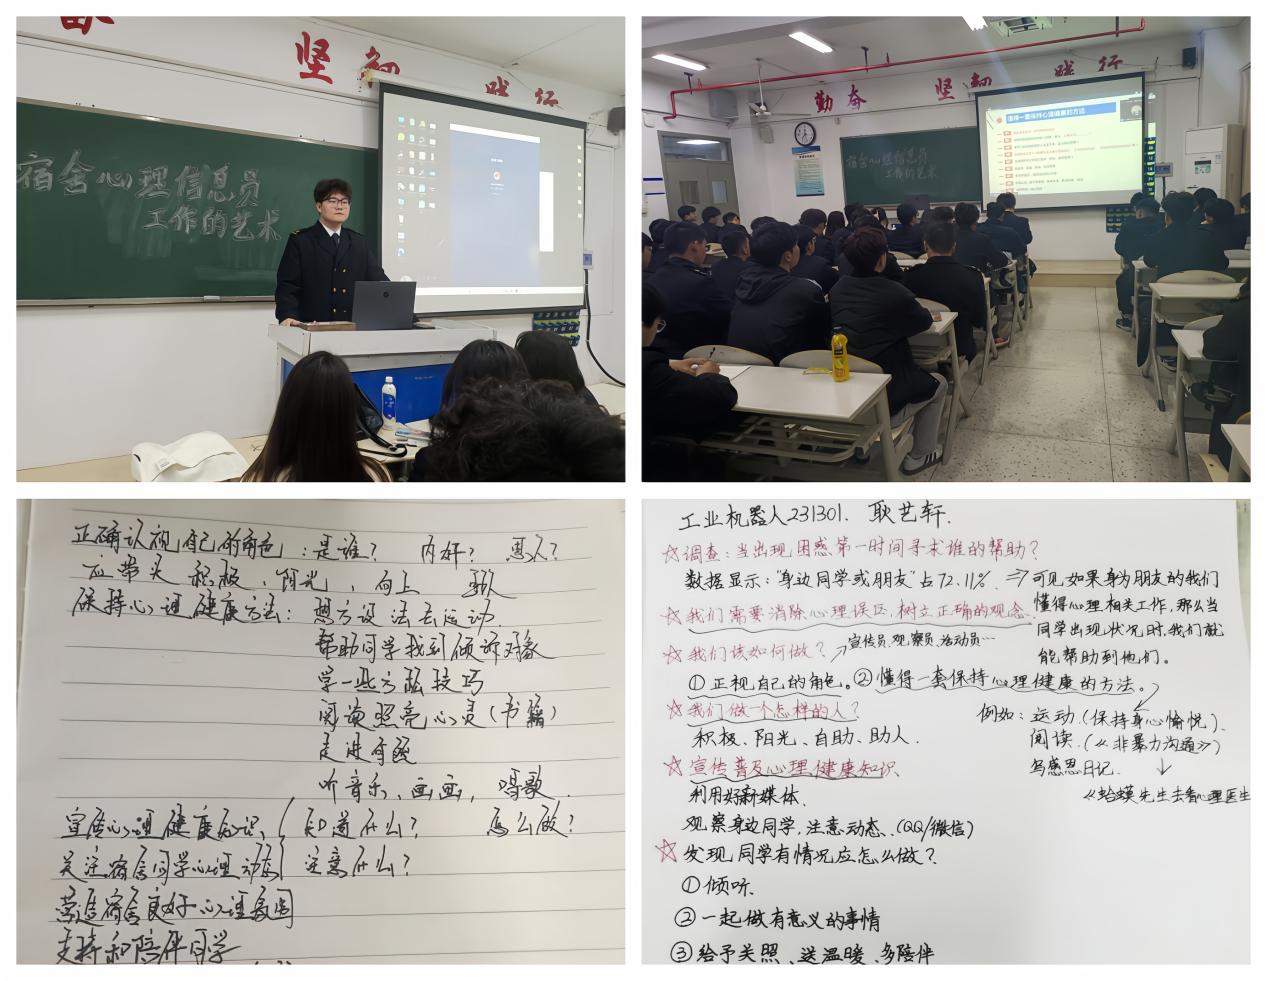 坚韧 践行
宿舍心理信息员
工作的艺术
勤奋 坚韧 践行
值得一套保持心理健康的方法
宿舍心理信息员
工作的艺术
正确认视自己的角色：是谁？ 内奸？ 恶人？
应带头 积极、阳光、向上
保持心理健康方法：想方设法去运动
帮助同学找到倾诉对象
学一些方松技巧
阅读照亮心灵（书籍）
走进
听音乐、画画、唱歌.
宣传心理健康知识 知道什么？ 怎么做？
关注宿舍同学心理动态 注意什么？
营造宿舍良好心理氛围
支持和陪伴同学
工业机器人231301. 耿艺轩.
☆调查：当出现困惑第一时间寻求谁的帮助？
数据显示：“身边同学或朋友”占72.11% ⇒可见如果身为朋友的我们
懂得心理相关工作，那么当
同学出现状况时，我们就
能帮助到他们。
☆我们需要消除心理误区，树立正确的观念.
☆我们该如何做？↗宣传员、观察员、活动员…
①正视自己的角色。②懂得一套保持心理健康的方法。
例如：运动.（保持身心愉悦）.
阅读.（《非暴力沟通》）
写感恩日记. ↓
《蛤蟆先生去看心理医生
☆我们做一个怎样的人？
积极、阳光、自助、助人.
☆宣传普及心理健康知识
利用好新媒体.
观察身边同学，注意动态.（QQ/微信）
☆发现同学有情况应怎么做？
①倾听.
②一起做有意义的事情
③给予关照、送温暖、多陪伴